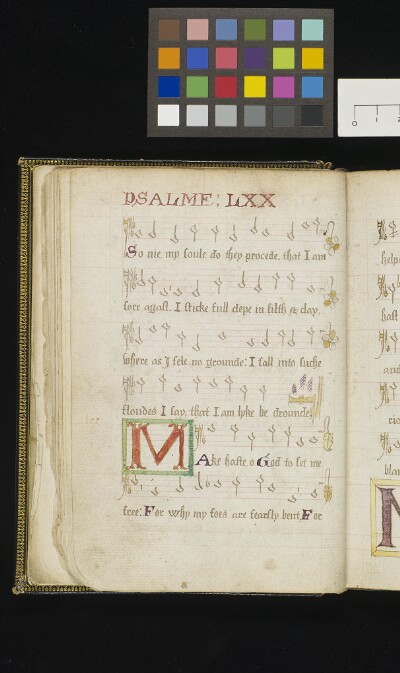 PSALME: LXX
So nie my soule do they procede. that I am
sore agast. I sticke full depe in filth & clay.
where as I fele no grounde: I fall into suche
floudes I say, that I am lyke be drounde.
MAke haste o God to set me
free: For why my foes are fearsly bent, For
helpe
hast
and
M
0 1 2